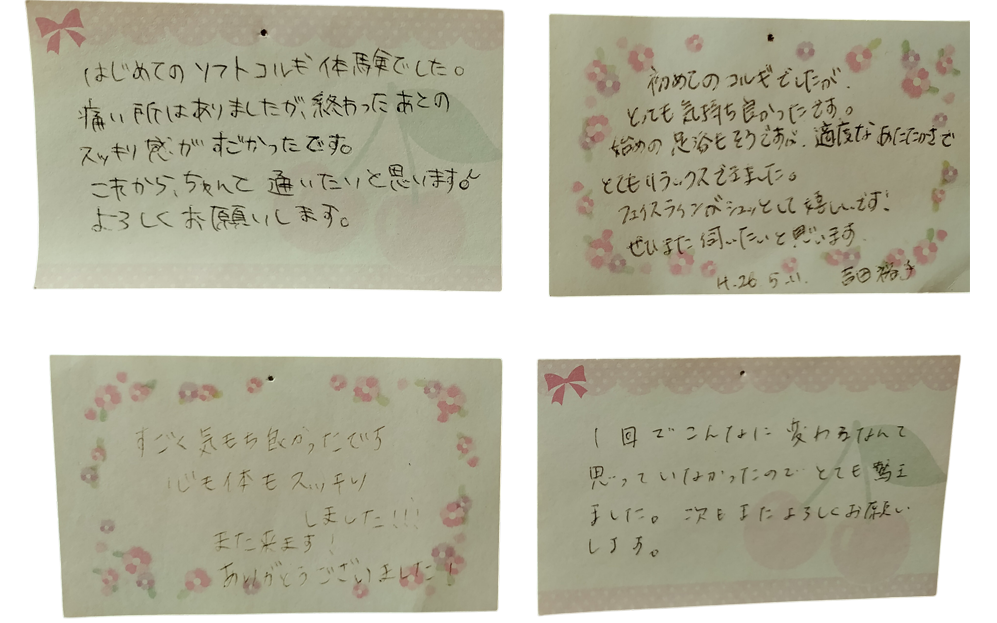 はじめての ソフトコルギ 体験でした。
痛い所はありましたが、終わったあとの
スッキリ感がすごかったです。
これから、ちゃんと 通いたいと思います。
よろしくお願いします。
初めてのコルギでしたが、
とても気持ち良かったです。
始めの足浴もそうですが、適度なあたたかさで
とてもリラックスできました。
フェイスラインがシュッとして嬉しいです!
ぜひまた伺いたいと思います
H.26 5.11. 吉田裕子
すごく気もち良かったです
心も体もスッキリ
しました!!!
また来ます!
ありがとうございました!
1回でこんなに変わるなんて
思っていなかったのでとても驚き
ました。次もまたよろしくお願い
します。